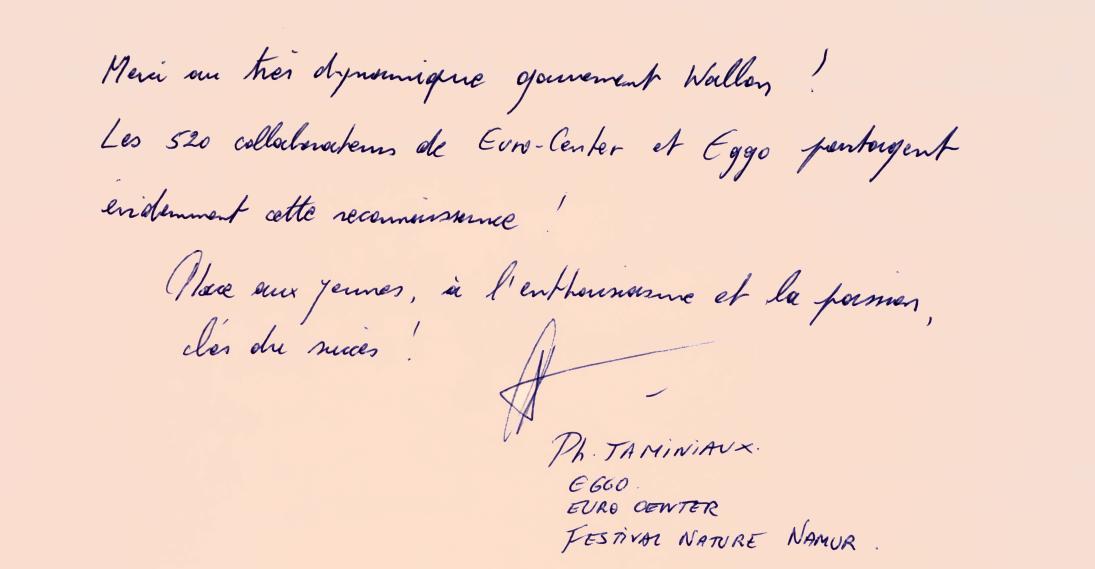 Merci au très dynamique gouvernement Wallon !
Les 520 collaborateurs de Euro-Center et Eggo partagent
évidemment cette reconnaissance !
Place aux jeunes, à l'enthousiasme et la passion,
clés du succès !
Ph. TAMINIAUX.
EGGO.
EURO CENTER
FESTIVAL NATURE NAMUR.